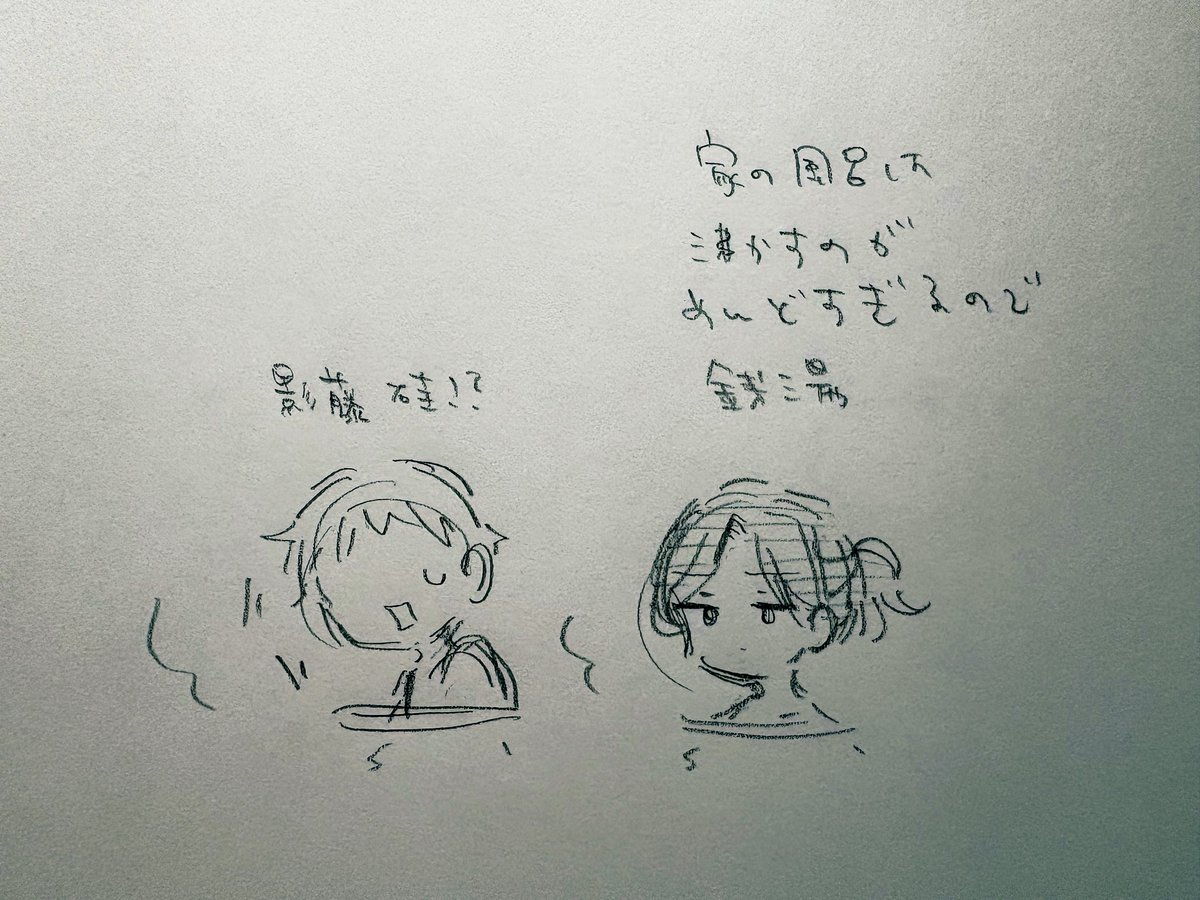 家の風呂は
沸かすのが
めんどすぎるので
銭湯
影藤 硅!?